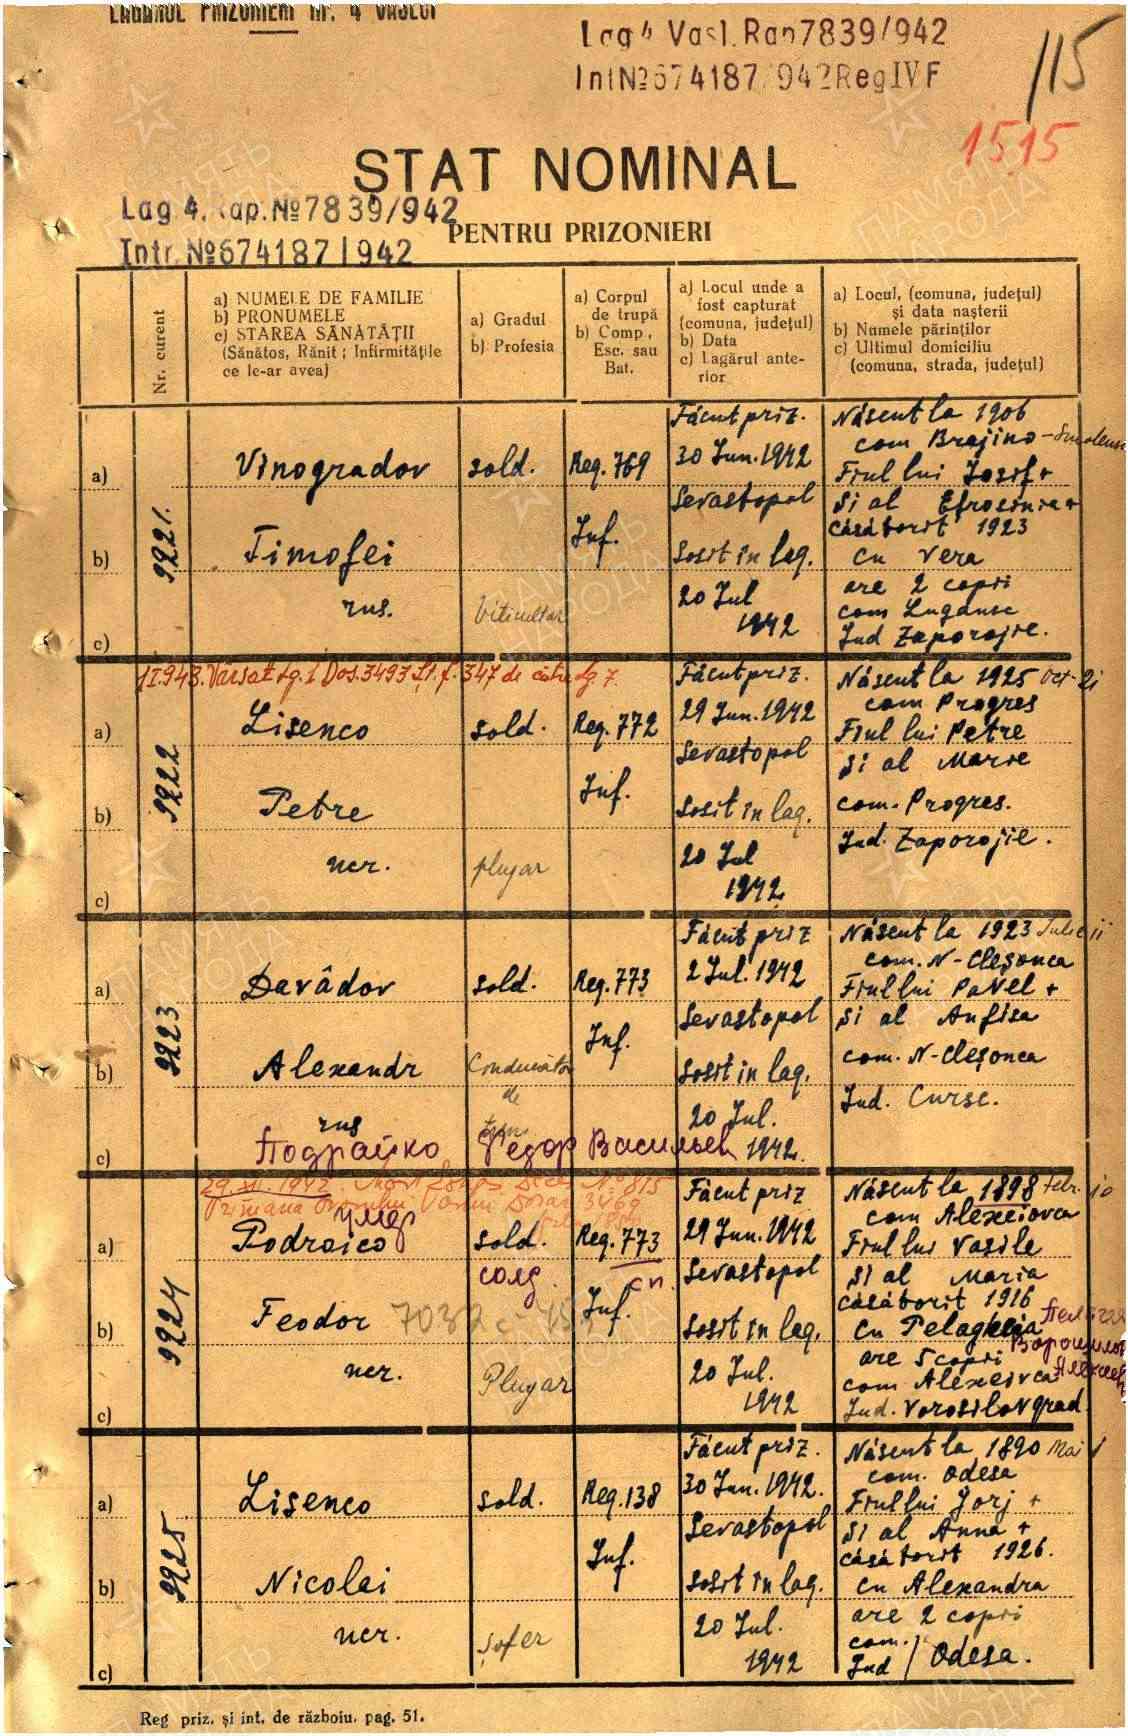 LAGĂRUL PRIZONIERI Nr. 4 VASLUI
Lag 4 Vasl. Rap 7839/942
Int № 674187/942 Reg IV F
115
1515
STAT NOMINAL
Lag 4. Rap. № 7839/942
PENTRU PRIZONIERI
Intr. № 674187/942
Nr. curent
a) NUMELE DE FAMILIE
b) PRONUMELE
c) STAREA SĂNĂTĂȚII
(Sănătos, Rănit ; Infirmitățile
ce le-ar avea)
a) Gradul
b) Profesia
a) Corpul
de trupă
b) Comp,
Esc. sau
Bat.
a) Locul unde a
fost capturat
(comuna, județul)
b) Data
c) Lagărul ante-
rior
a) Locul, (comuna, județul)
și data nașterii
b) Numele părinților
c) Ultimul domiciliu
(comuna, strada, județul)
9221.
a)
b)
c)
Vinogradov
Timofei
rus.
sold.
Viticultor
Reg. 769
Inf.
Făcut priz.
30 Iun. 1942
Sevastopol
Sosit în lag.
20 Iul
1942
Născut la 1906
com Brajino - Smolensc
Fiul lui Iosif +
Si al Efrosinia +
Căsătorit 1923
cu Vera
are 2 copii
com Lugansc
Jud Zaporojie.
9222
1 I 943. Vărsat Lg. 1 Dos. 3493 Lt. f. 347 de către Lg. 7.
a)
b)
c)
Lisenco
Petre
ucr.
sold.
plugar
Reg. 772
Inf.
Făcut priz.
29 Iun. 1942
Sevastopol
Sosit în lag.
20 Iul
1942
Născut la 1925 Oct-21
com Progres
Fiul lui Petre
Si al Marie
com. Progres.
Jud. Zaporojie.
9223
a)
b)
c)
Davâdov
Alexandr
rus
sold.
Conducător
de
Reg. 773
Inf.
Făcut priz
2 Iul. 1942
Sevastopol
Sosit în lag.
20 Iul.
1942.
Născut la 1923 Iulie 11
com. N-Cleșonca
Fiul lui Pavel +
Si al Anfisa
com. N-Cleșonca
Jud. Cursc.
Подрайко Федор Васильев
9224
29. XI. 1942. Mort Deces № 815
Primăria Orașului Vaslui Dosar 3469
умер
a)
b)
c)
Podraico
Feodor
ucr.
7032
sold.
солд.
Plugar
Reg. 773
сп.
Inf.
Făcut priz
29 Iun. 1942
Sevastopol
Sosit în lag.
20 Iul.
1942
Născut la 1898 Febr. 10
com Alexeiovca
Fiul lui Vasile
Si al Maria
Căsătorit 1916
cu Pelagheia Пелагея
are 5 copii Ворошилов
com Alexeivca Алексеев
Jud. Vorosilovgrad
9225
a)
b)
c)
Lisenco
Nicolai
ucr.
sold.
șofer
Reg. 138
Inf.
Făcut priz.
30 Iun. 1942.
Sevastopol
Sosit în lag.
20 Iul.
1942
Născut la 1890 Mai 1
com. Odesa
Fiul lui Jorj +
Si al Anna +
Căsătorit 1926.
cu Alexandra
are 2 copii
com.
Jud / Odesa.
Reg priz. și int. de războiu. pag. 51.